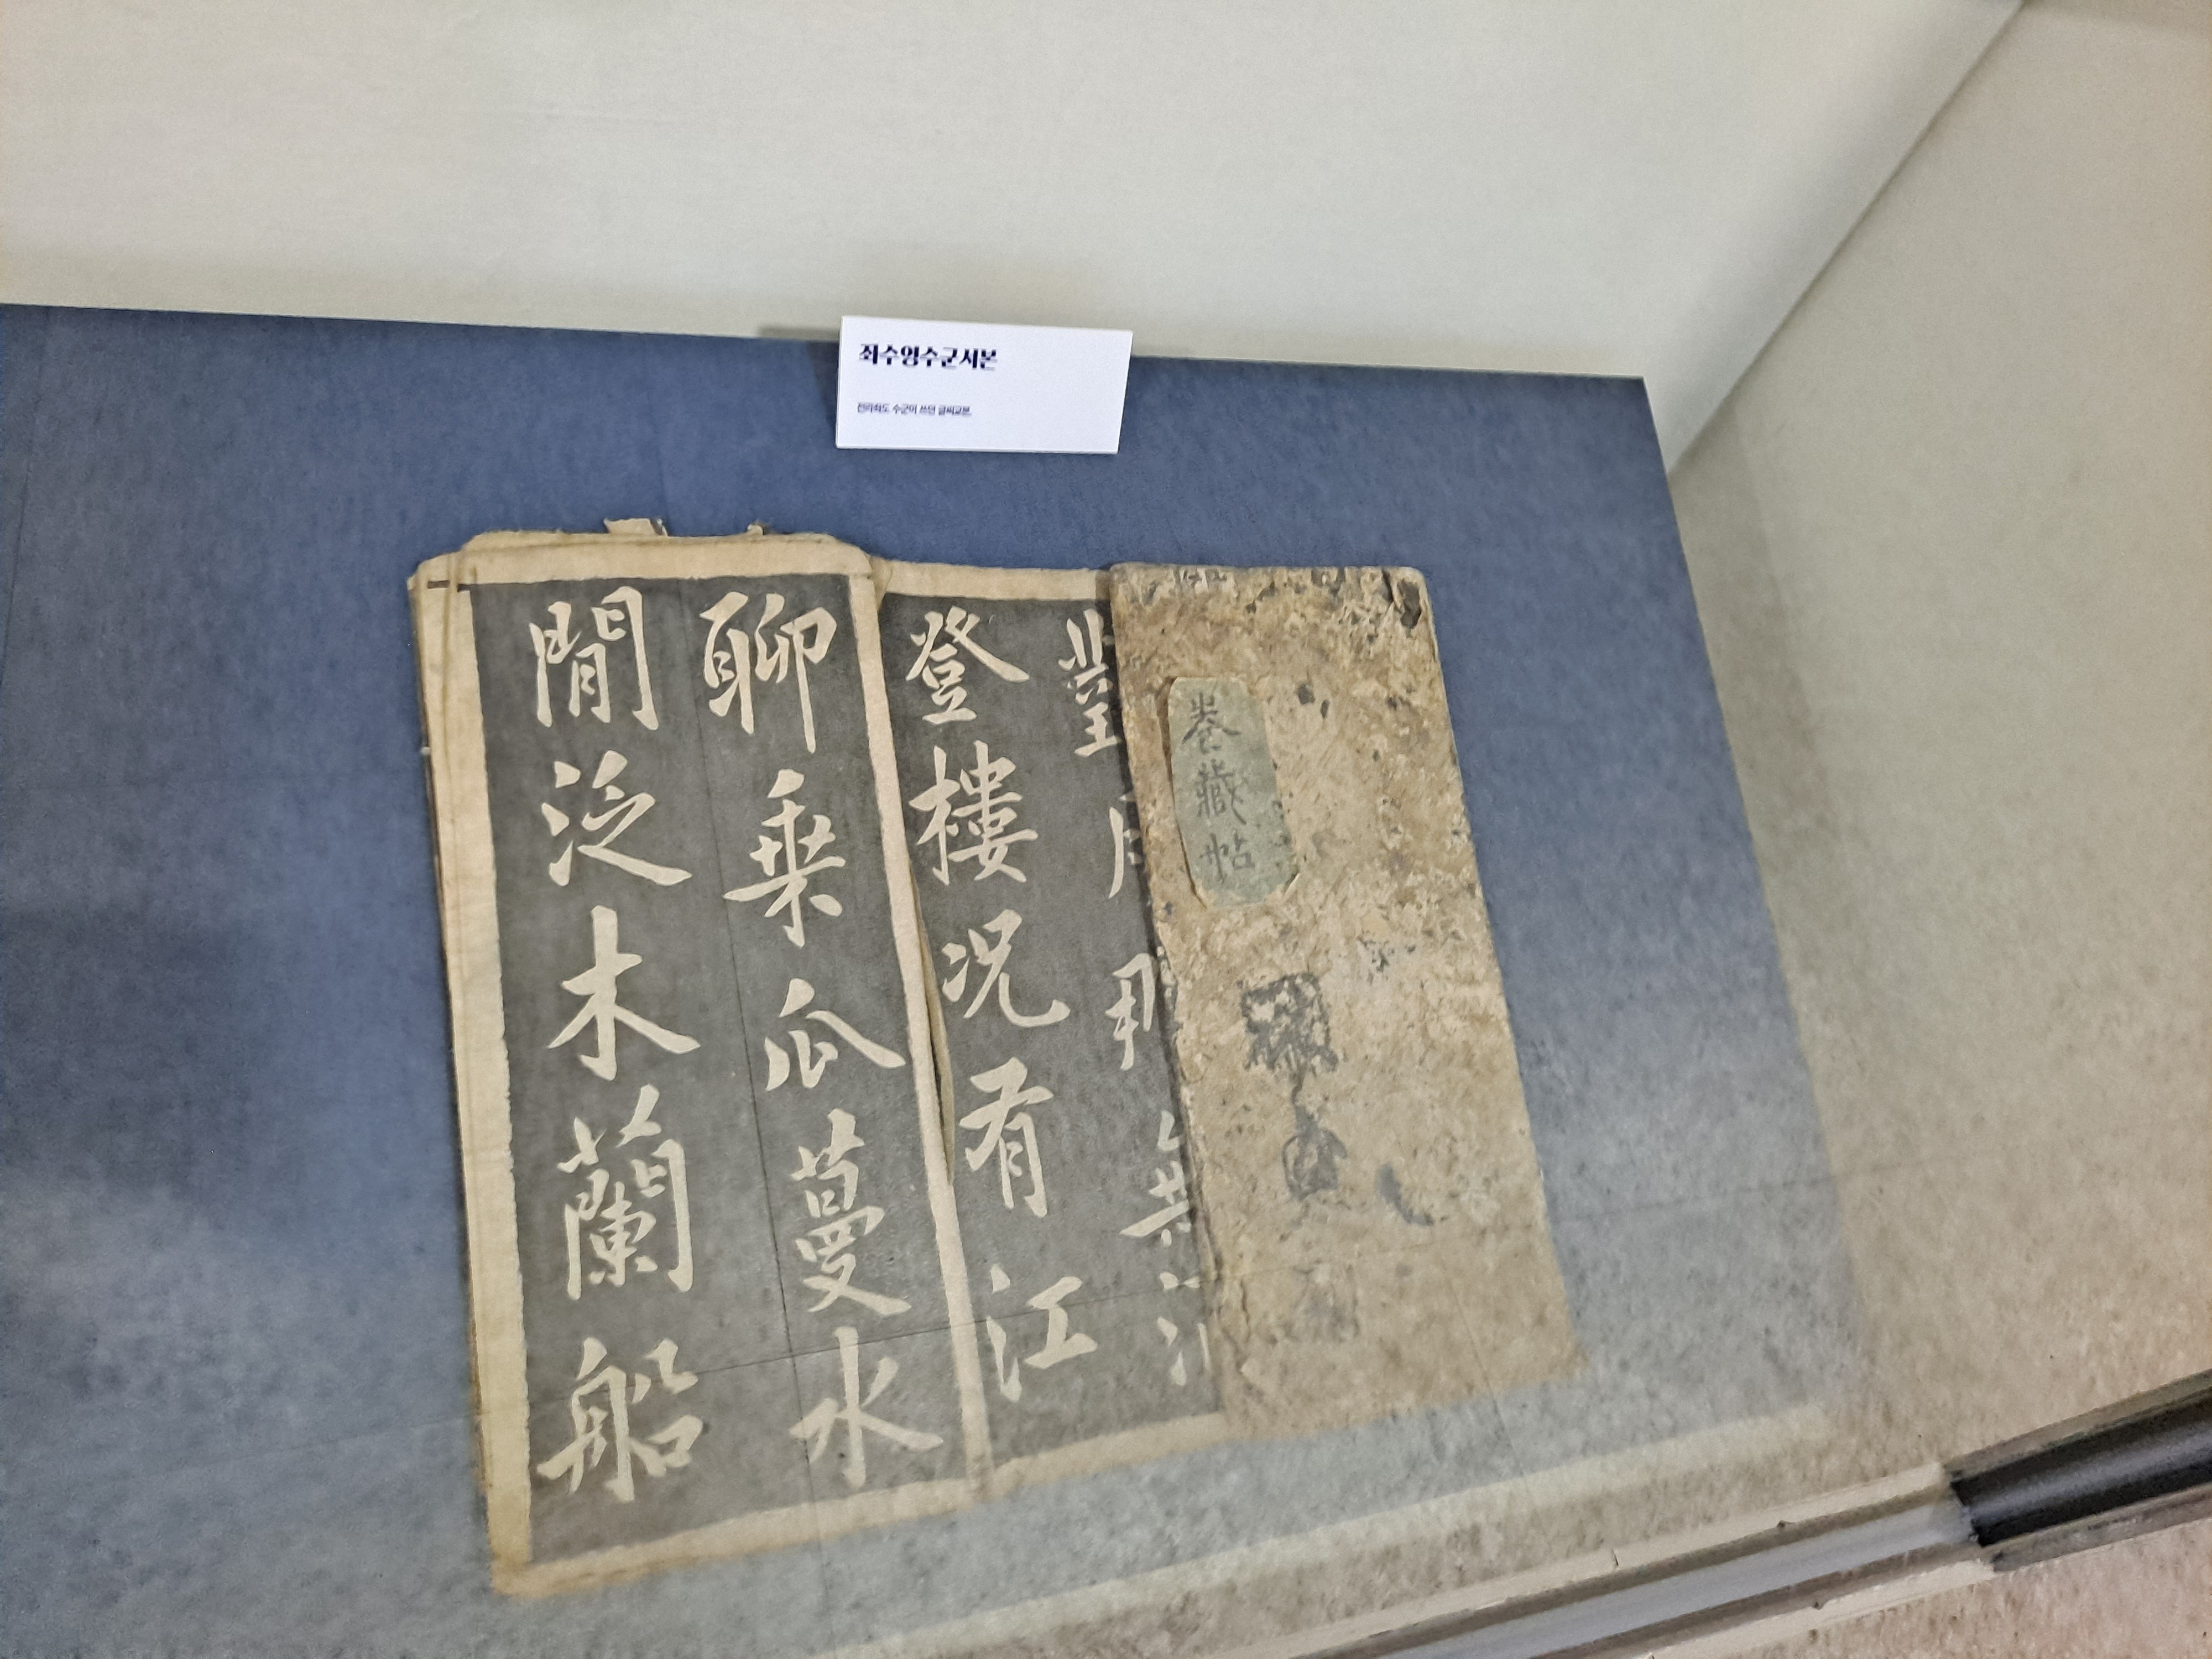 좌수영수군서본
전라좌도 수군이 쓰던 글씨교본
卷藏帖
豈
登樓況有江
聊乗瓜蔓水
閒泛木蘭船